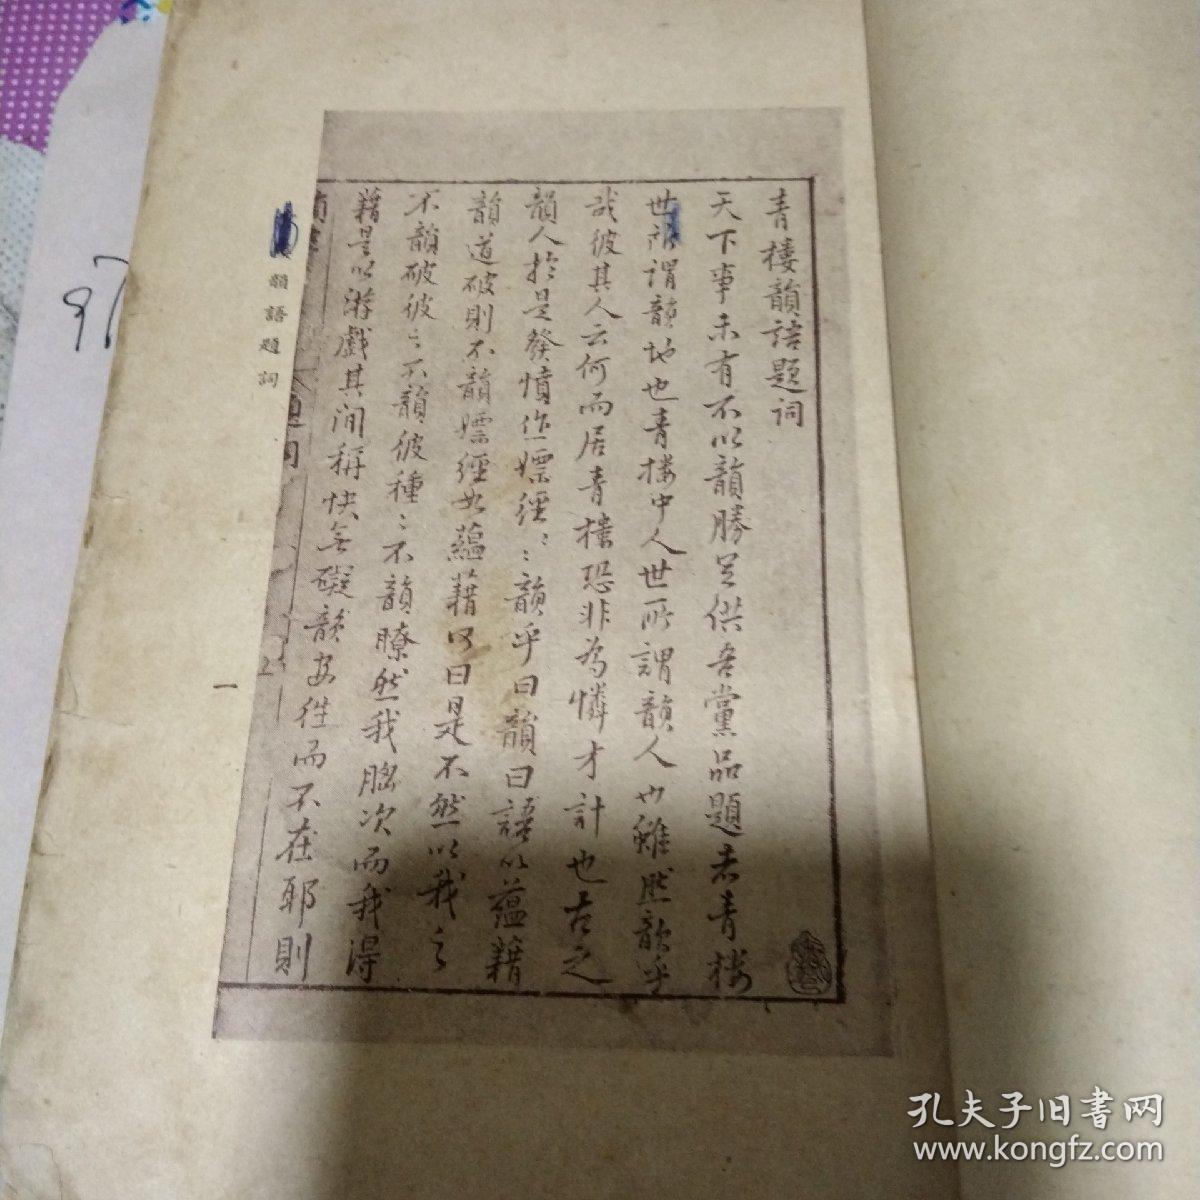 青樓韻語題詞
天下事未有不以韻勝足供吾黨品題者青樓
世所謂韻地也青樓中人世所謂韻人也雖然韻乎
哉彼其人云何而居青樓恐非為憐才計也古之
韻人於是發憤作嫖經〻韻乎曰韻曰語以蘊藉
韻道破則不韻嫖經如蘊藉何曰是不然以我之
不韻破彼〻不韻彼種〻不韻瞭然我胸次而我得
藉是以游戲其間稱快無礙韻安往而不在耶則
韻語題詞
一
97
孔夫子旧书网
www.kongfz.com